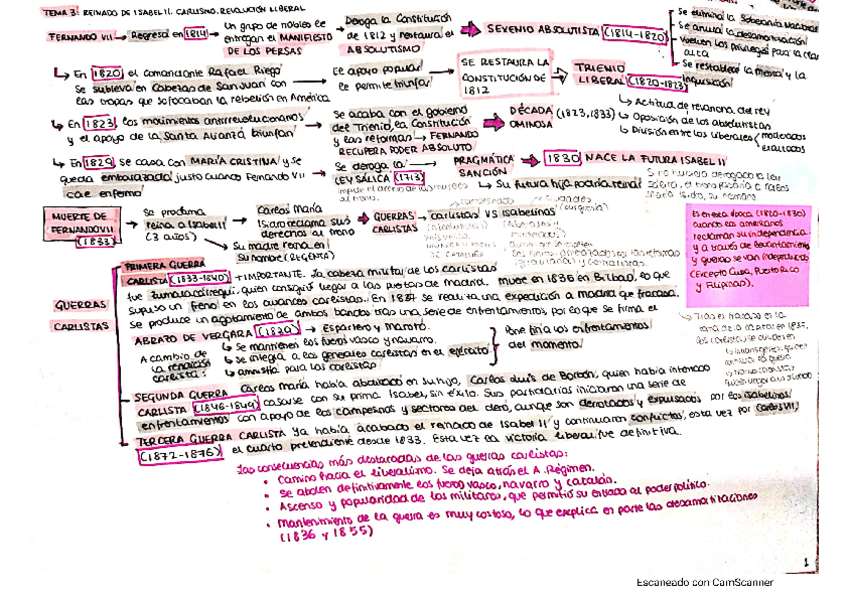 TEMA 3: REINADO DE ISABEL II. CARLISMO. REVOLUCIÓN LIBERAL
FERNANDO VII → Regresa en 1814 → Un grupo de nobles le entregan el MANIFIESTO DE LOS PERSAS → Deroga la Constitución de 1812 y restaura el ABSOLUTISMO → SEXENIO ABSOLUTISTA (1814-1820)
Se elimina la Soberanía Nacional
Se anula la desamortización
Vuelven los privilegios para la clase alta
Se restablece la mesta y la Inquisición
↳ En 1820 el comandante Rafael Riego
se subleva en Cabezas de San Juan con
las tropas que sofocaban la rebelión en América
→ le apoyo popular
le permite triunfar
→ SE RESTAURA LA
CONSTITUCIÓN DE
1812
→ TRIENIO
LIBERAL (1820-1823)
↳ Actitud de revancha del rey
↳ Oposición de los absolutistas
↳ División entre los liberales
moderados
exaltados
↳ En 1823, los movimientos antirrevolucionarios
y el apoyo de la Santa Alianza triunfan
→ Se acaba con el gobierno
del Trienio, la Constitución
y las reformas → FERNANDO
RECUPERA PODER ABSOLUTO
→ DÉCADA (1823,1833)
OMINOSA
↳ En 1829 se casa con MARÍA CRISTINA y se
queda embarazada justo cuando Fernando VII
cae enfermo
→ Se deroga la
LEY SÁLICA (1713)
→ PRAGMÁTICA
SANCIÓN
→ 1830 NACE LA FUTURA ISABEL II
↳ Su futura hija podría reinar
MUERTE DE
FERNANDO VII
(1833)
→ Se proclama
reina a Isabel II
(3 años)
→ Carlos María
Isidro reclama sus
derechos al trono
→ GUERRAS
CARLISTAS
→ carlistas VS isabelinos
↳ Su madre reina en
su nombre (REGENTE)
Es en esta época (1820-1830)
cuando los americanos
reclaman su independencia
y a través de levantamientos
y guerras se van independizando
(Excepto Cuba, Puerto Rico
y Filipinas).
GUERRAS
CARLISTAS
PRIMERA GUERRA
CARLISTA (1833-1840) → + IMPORTANTE. La cabeza militar de los carlistas
fue Zumalacárregui, quien consiguió llegar a las puertas de Madrid. Muere en 1836 en Bilbao, lo que
supuso un freno en los avances carlistas. En 1837 se realiza una expedición a Madrid que fracasa.
Se produce un agotamiento de ambos bandos tras una serie de enfrentamientos por lo que se firma el
ABRAZO DE VERGARA (1839) → Espartero y Maroto.
A cambio de
la rendición
carlista:
↳ Se mantienen los fueros vasco y navarro.
↳ Se integra a los generales carlistas en el ejército
↳ amnistía para los carlistas
Pone fin a los enfrentamientos
del momento.
SEGUNDA GUERRA
CARLISTA (1846-1849)
Carlos María había abdicado en su hijo, Carlos Luis de Borbón, quien había intentado
casarse con su prima Isabel, sin éxito. Sus partidarios iniciaron una serie de
enfrentamientos con apoyo de los campesinos y sectores del clero, aunque son derrotados y expulsados por los isabelinos
TERCERA GUERRA CARLISTA
(1872-1876)
Ya había acabado el reinado de Isabel II y continuaron conflictos, esta vez por Carlos VII,
el cuarto pretendiente desde 1833. Esta vez la victoria liberal fue definitiva.
Las consecuencias más destacadas de las guerras carlistas:
• Camino hacia el liberalismo. Se deja atrás el A. Régimen.
• Se abolen definitivamente los fueros vasco, navarro y catalán.
• Ascenso y popularidad de los militares, que permitió su entrada al poder político.
• Mantenimiento de la guerra es muy costoso, lo que explica en parte las desamortizaciones
(1836 y 1855)
1
Escaneado con CamScanner